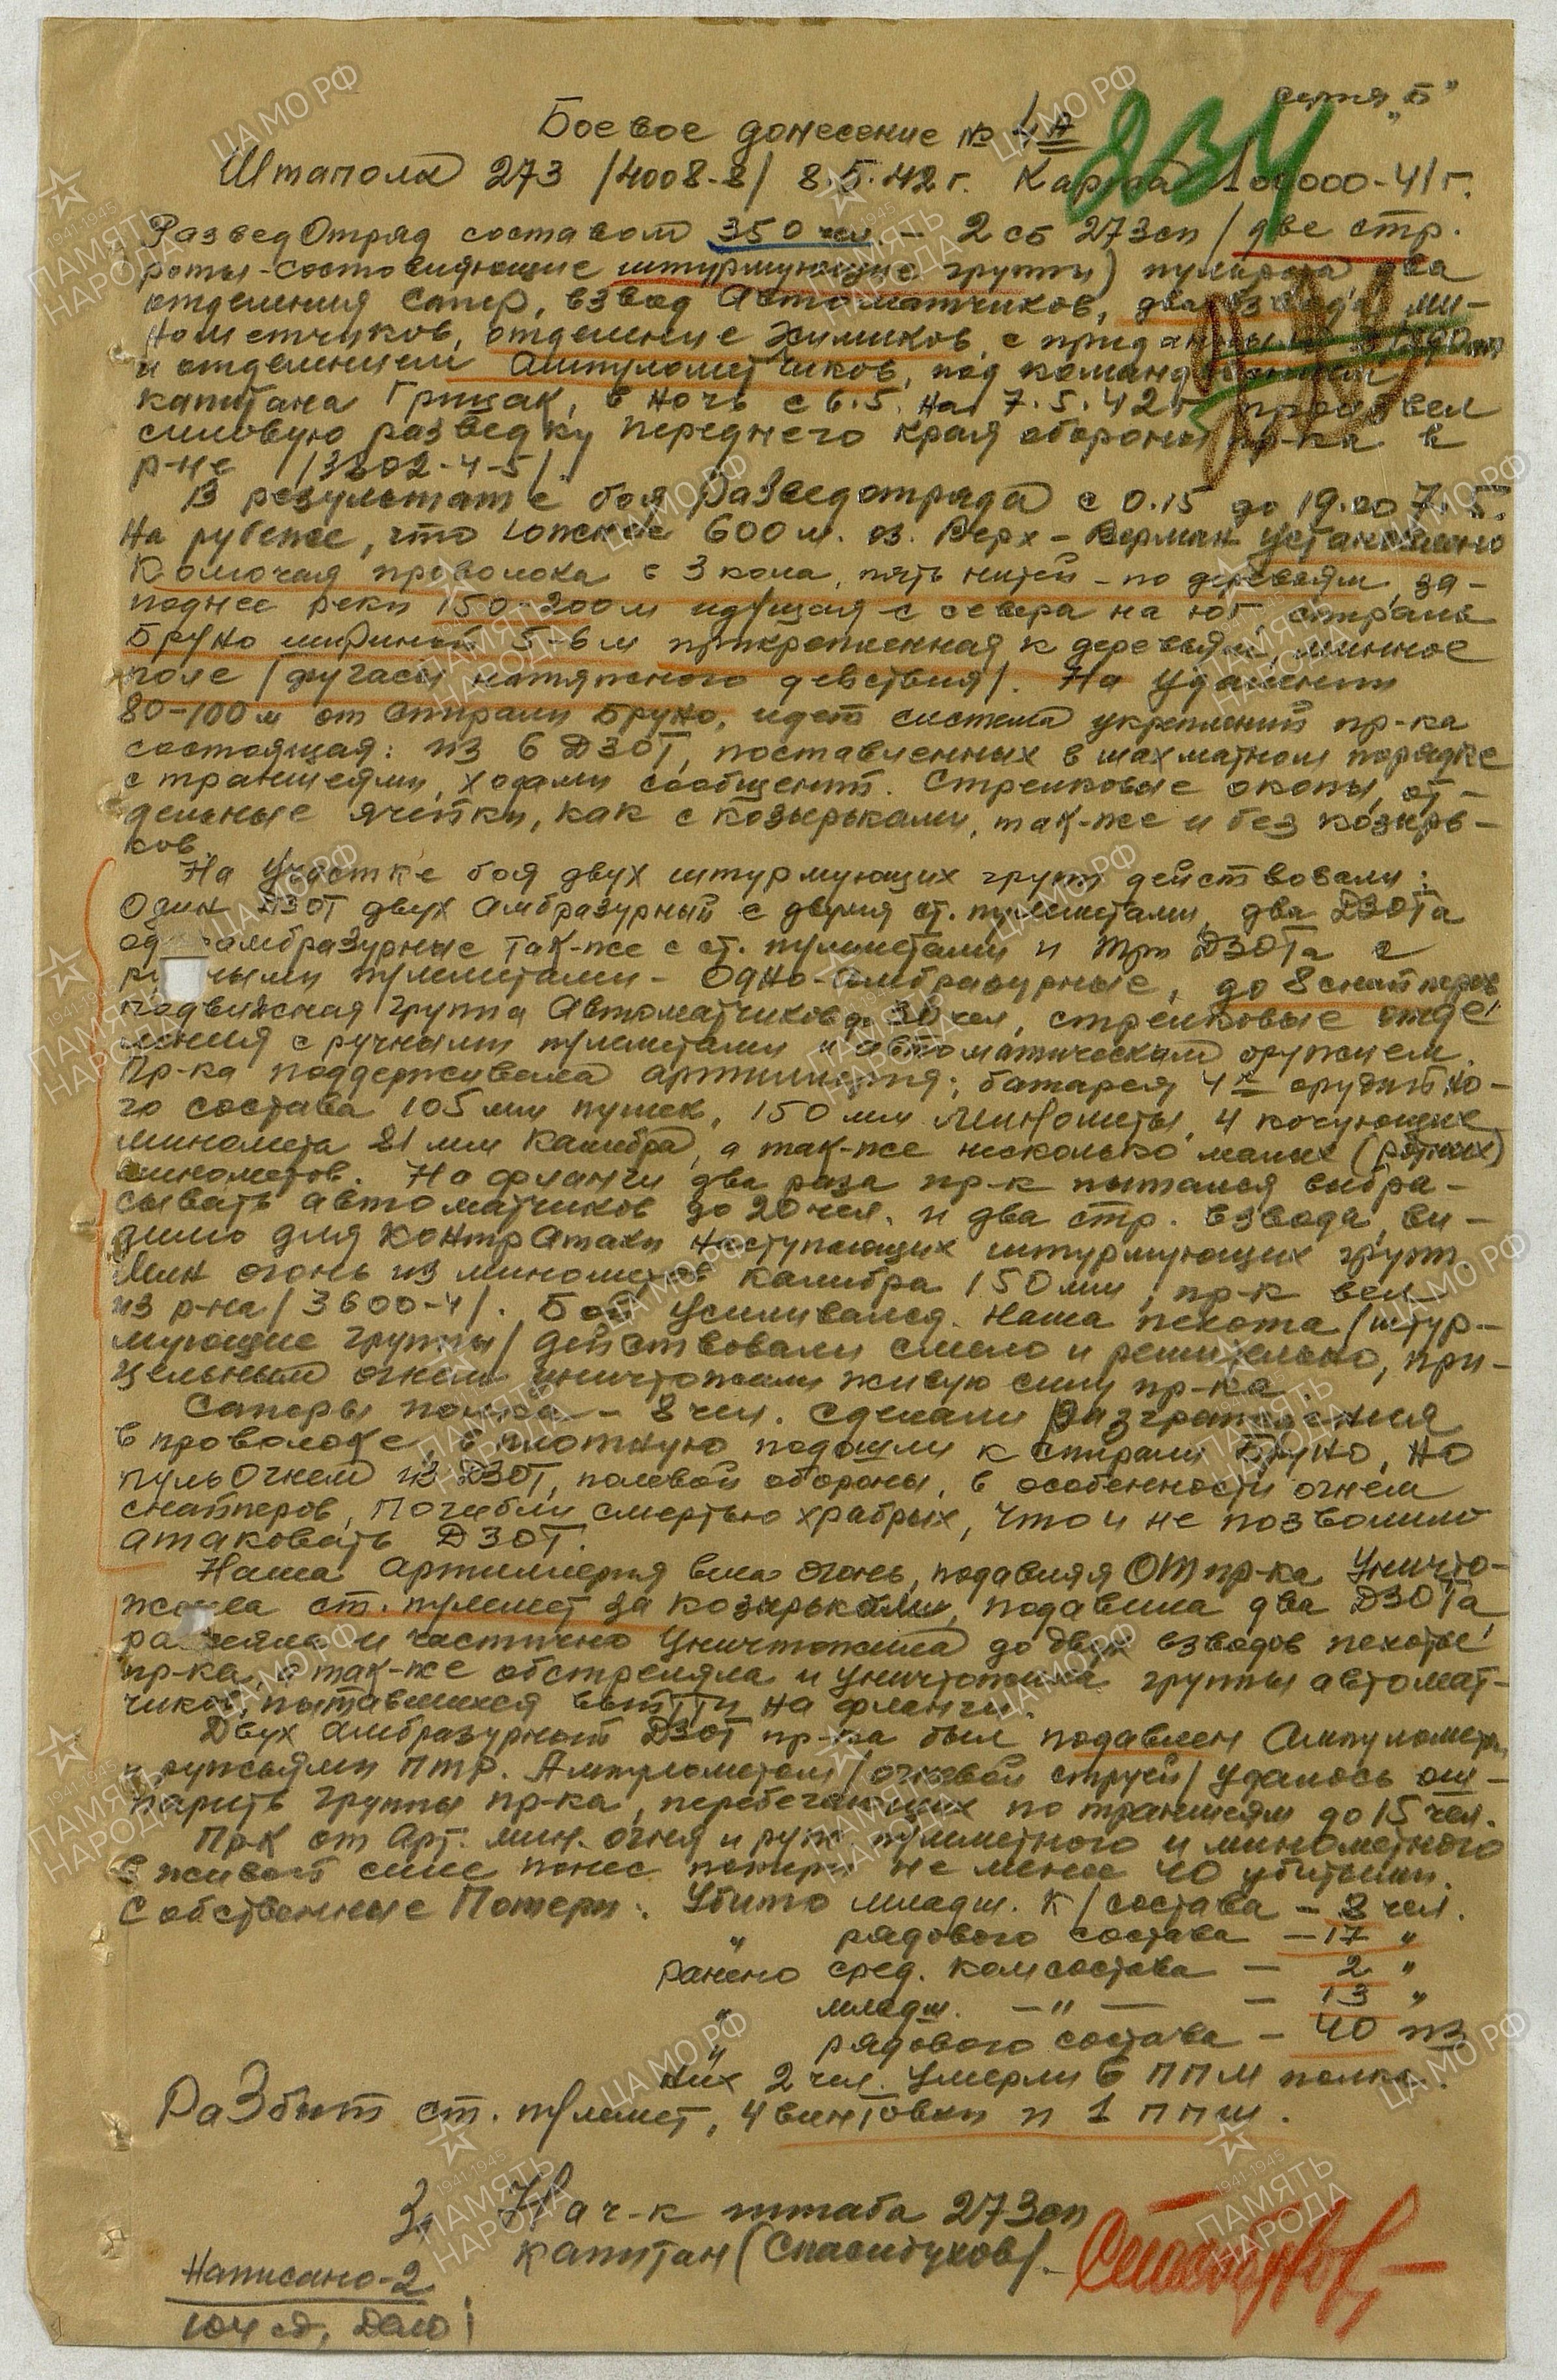 серия „Б"
Боевое донесение №
234
Штаполк 273 /4008-8/ 8.5.42 г. Карта 100000-41 г.
РазведОтряд составом 350 чел. - 2 сб 273сп /две стр.
роты-составляющие штурмующие группы) пульрота, два
отделения сапер, взвод Автоматчиков, два взвода ми-
нометчиков, отделение Химиков, с приданным
и отделением Ампулометчиков, под командованием
капитана Грицак, в ночь с 6.5. на 7.5.42 г произвел
силовую разведку переднего края обороны пр-ка в
р-не /3802-4-5/.
В результате боя Разведотряда с 0.15 до 19.00 7.5.
На рубеже, что южнее 600 м. оз. Верх-Верман установлено
Колючая проволока в 3 кола, пять нитей - по деревьям, за-
поднее реки 150-200 м идущая с севера на юг, спираль
Бруно шириной 5-6 м прикрепленная к деревьям, минное
поле /фугасы натяжного действия/. На удалении
80-100 м от спирали Бруно, идет система укреплений пр-ка
состоящая: из 6 ДЗОТ, поставленных в шахматном порядке
с траншеями, ходами сообщений. Стрелковые окопы, от-
дельные ячейки, как с козырьками, так-же и без козырь-
ков.
На участке боя двух штурмующих групп действовали:
Один ДЗОТ двух амбразурный с двумя ст. пулеметами, два ДЗОТа
од амбразурные так-же с ст. пулеметами и три ДЗОТа с
ру ными пулеметами - Одно-амбразурные, до 8 снайперов
подвижная группа Автоматчиков до 30 чел, стрелковые отде-
ления с ручными пулеметами и автоматическим оружием.
Пр-ка поддерживала артиллерия: батарея 4х орудийно-
го состава 105 мм пушек, 150 мм минометы, 4 кочующие
миномета 81 мм калибра, а так-же несколько малых (ротных)
минометов. На фланги два раза пр-к пытался выбра-
сывать автоматчиков до 20 чел. и два стр. взвода, ви-
димо для контратаки наступающих штурмующих групп.
Мин огонь из минометов калибра 150 мм, пр-к вел
из р-на /3600-4/. Бой усиливался. Наша пехота /штур-
мующие группы/ действовали смело и решительно, при-
цельным огнем уничтожали живую силу пр-ка.
Саперы полка - 8 чел. сделали разграждения
в проволоке, в плотную подошли к спирали Бруно, но
пульОгнем из ДЗОТ, полевой обороны, в особенности огнем
снайперов, погибли смертью храбрых, что и не позволило
атаковать ДЗОТ.
Наша Артиллерия вела огонь, подавляя ОТ пр-ка Уничто-
жила ст. пулемет за козырьками, подавила два ДЗОТа,
рассеяла и частично уничтожила до двух взводов пехоты
пр-ка, а так-же обстреляла и уничтожила группы автомат-
чиков, пытавшихся выйти на фланги.
Двух амбразурный ДЗОТ пр-ка был подавлен Ампулометом
и ружьями ПТР. Ампулометом /огневой струей/ удалось ош-
парить группы пр-ка, перебегающих по траншеям до 15 чел.
Пр-к от Арт. мин. огня и руж. пулеметного и минометного
в живой силе понес потери не менее 40 убитыми.
Собственные Потери: Убито младш. к/состава - 8 чел.
" рядового состава - 17 "
ранено сред. комсостава - 2 "
" младш. - " - - 13 "
" рядового состава - 40 из
них 2 чел. умерли в ППМ полка.
Разбит ст. пулемет, 4 винтовки и 1 ппш.
Нач-к штаба 273сп
капитан (Спасибухов/.
Написано-2
104 сд, Дело